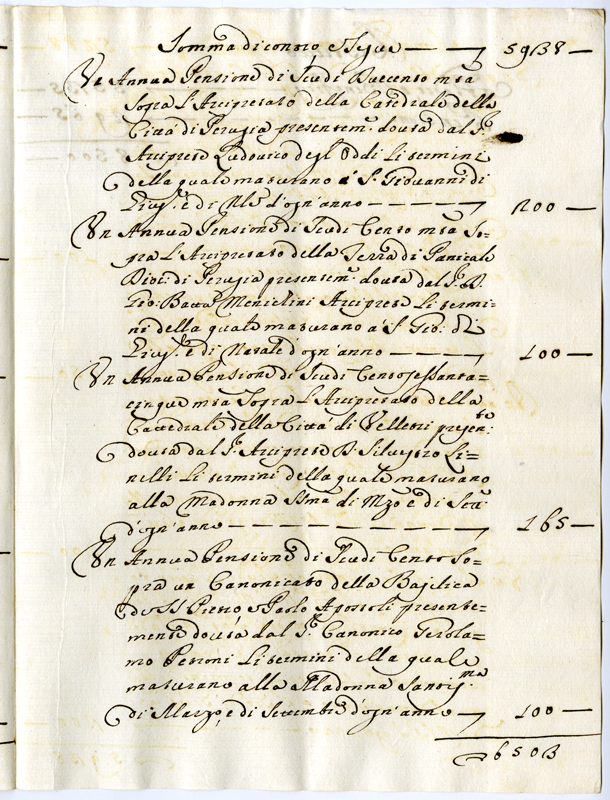 Somma di contro e segue — 5938 —
Un Annua Pensione di Scudi Duecento m.ta
Sopra l'Arcipretato della Catedrale della
Città di Perugia presentem.e douta dal S.r
Arciprete Ludouico degl'Oddi Li termini
della quale maturano à S. Giouanni di
Giug.o e di Nle d'ogn'anno — 200 —
Un Annua Pensione di Scudi Cento m.ta So=
pra l'Arcipretato della Terra di Panicale
Dioc: di Perugia presentem.e douta dal S.r D.
Gio: Batta Menichini Arciprete Li termi=
ni della quale maturano à S. Gio: di
Giug.o e di Natale d'ogn'anno — 100 —
Un Annua Pensione di Scudi Centosessanta=
cinque m.ta Sopra l'Arcipretato della
Cattedrale della Città di Velletri presen.te
douta dal S.r Arciprete D. Siluestro Li=
nelli Li termini della quale maturano
alla Madonna SSma di Mzo e di
d'ogn'anno — 165 —
Un Annua Pensione di Scudi Cento So=
pra un Canonicato della Basilica
de SS Pietro e Paolo Apostoli presente=
mente douta dal S.r Canonico Gerola=
mo Petroni Li termini della quale
maturano alla Madonna Santis.ma
di Marzo, e di Settembre d'ogn'anno — 100 —
6503